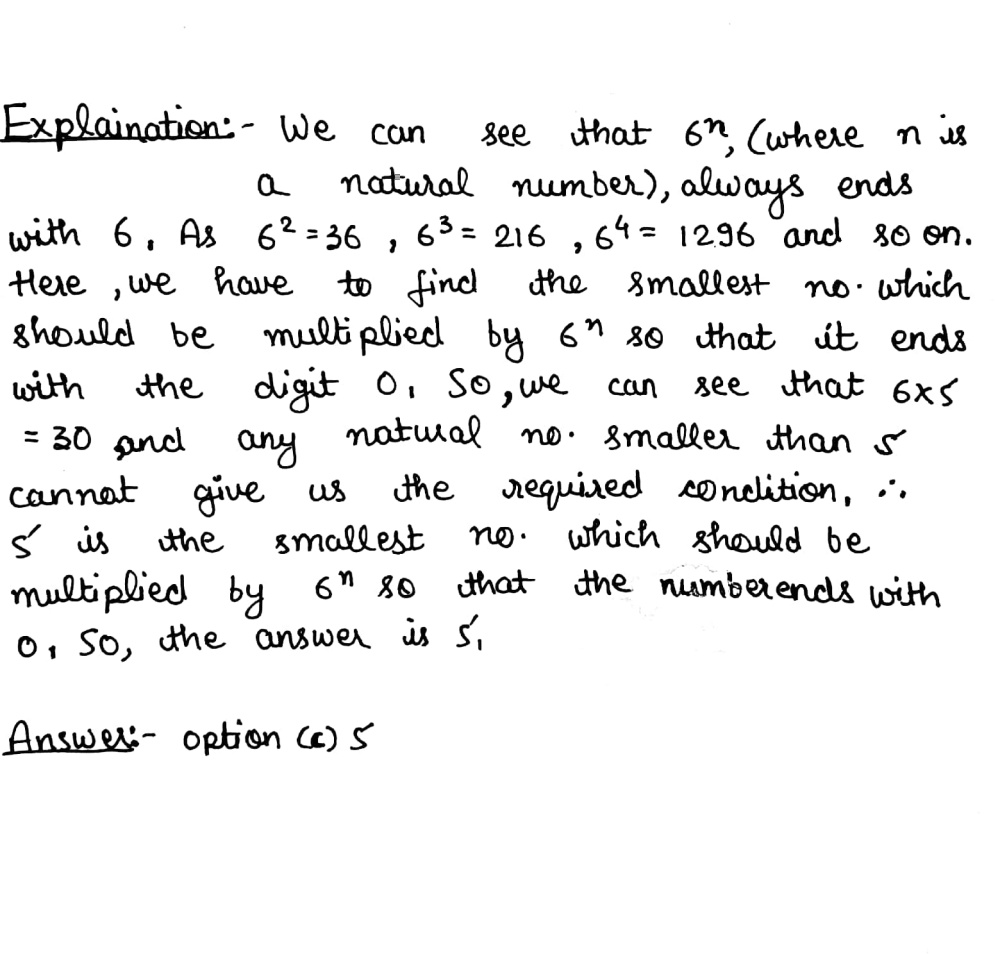 Explaination:- We can see that 6ⁿ, (where n is
a natural number), always ends
with 6. As 6² = 36 , 6³ = 216 , 6⁴ = 1296 and so on.
Here , we have to find the smallest no. which
should be multiplied by 6ⁿ so that it ends
with the digit 0. So, we can see that 6x5
= 30 and any natural no. smaller than 5
cannot give us the required condition, ∴
5 is the smallest no. which should be
multiplied by 6ⁿ so that the number ends with
0. So, the answer is 5.
Answer:- option (c) 5